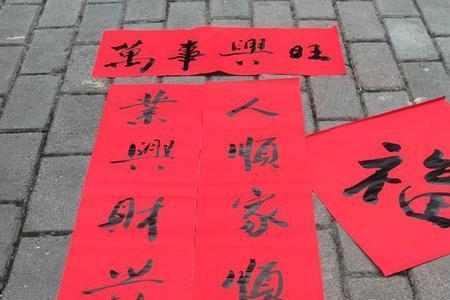 萬事興旺
人順家順
業興財
福